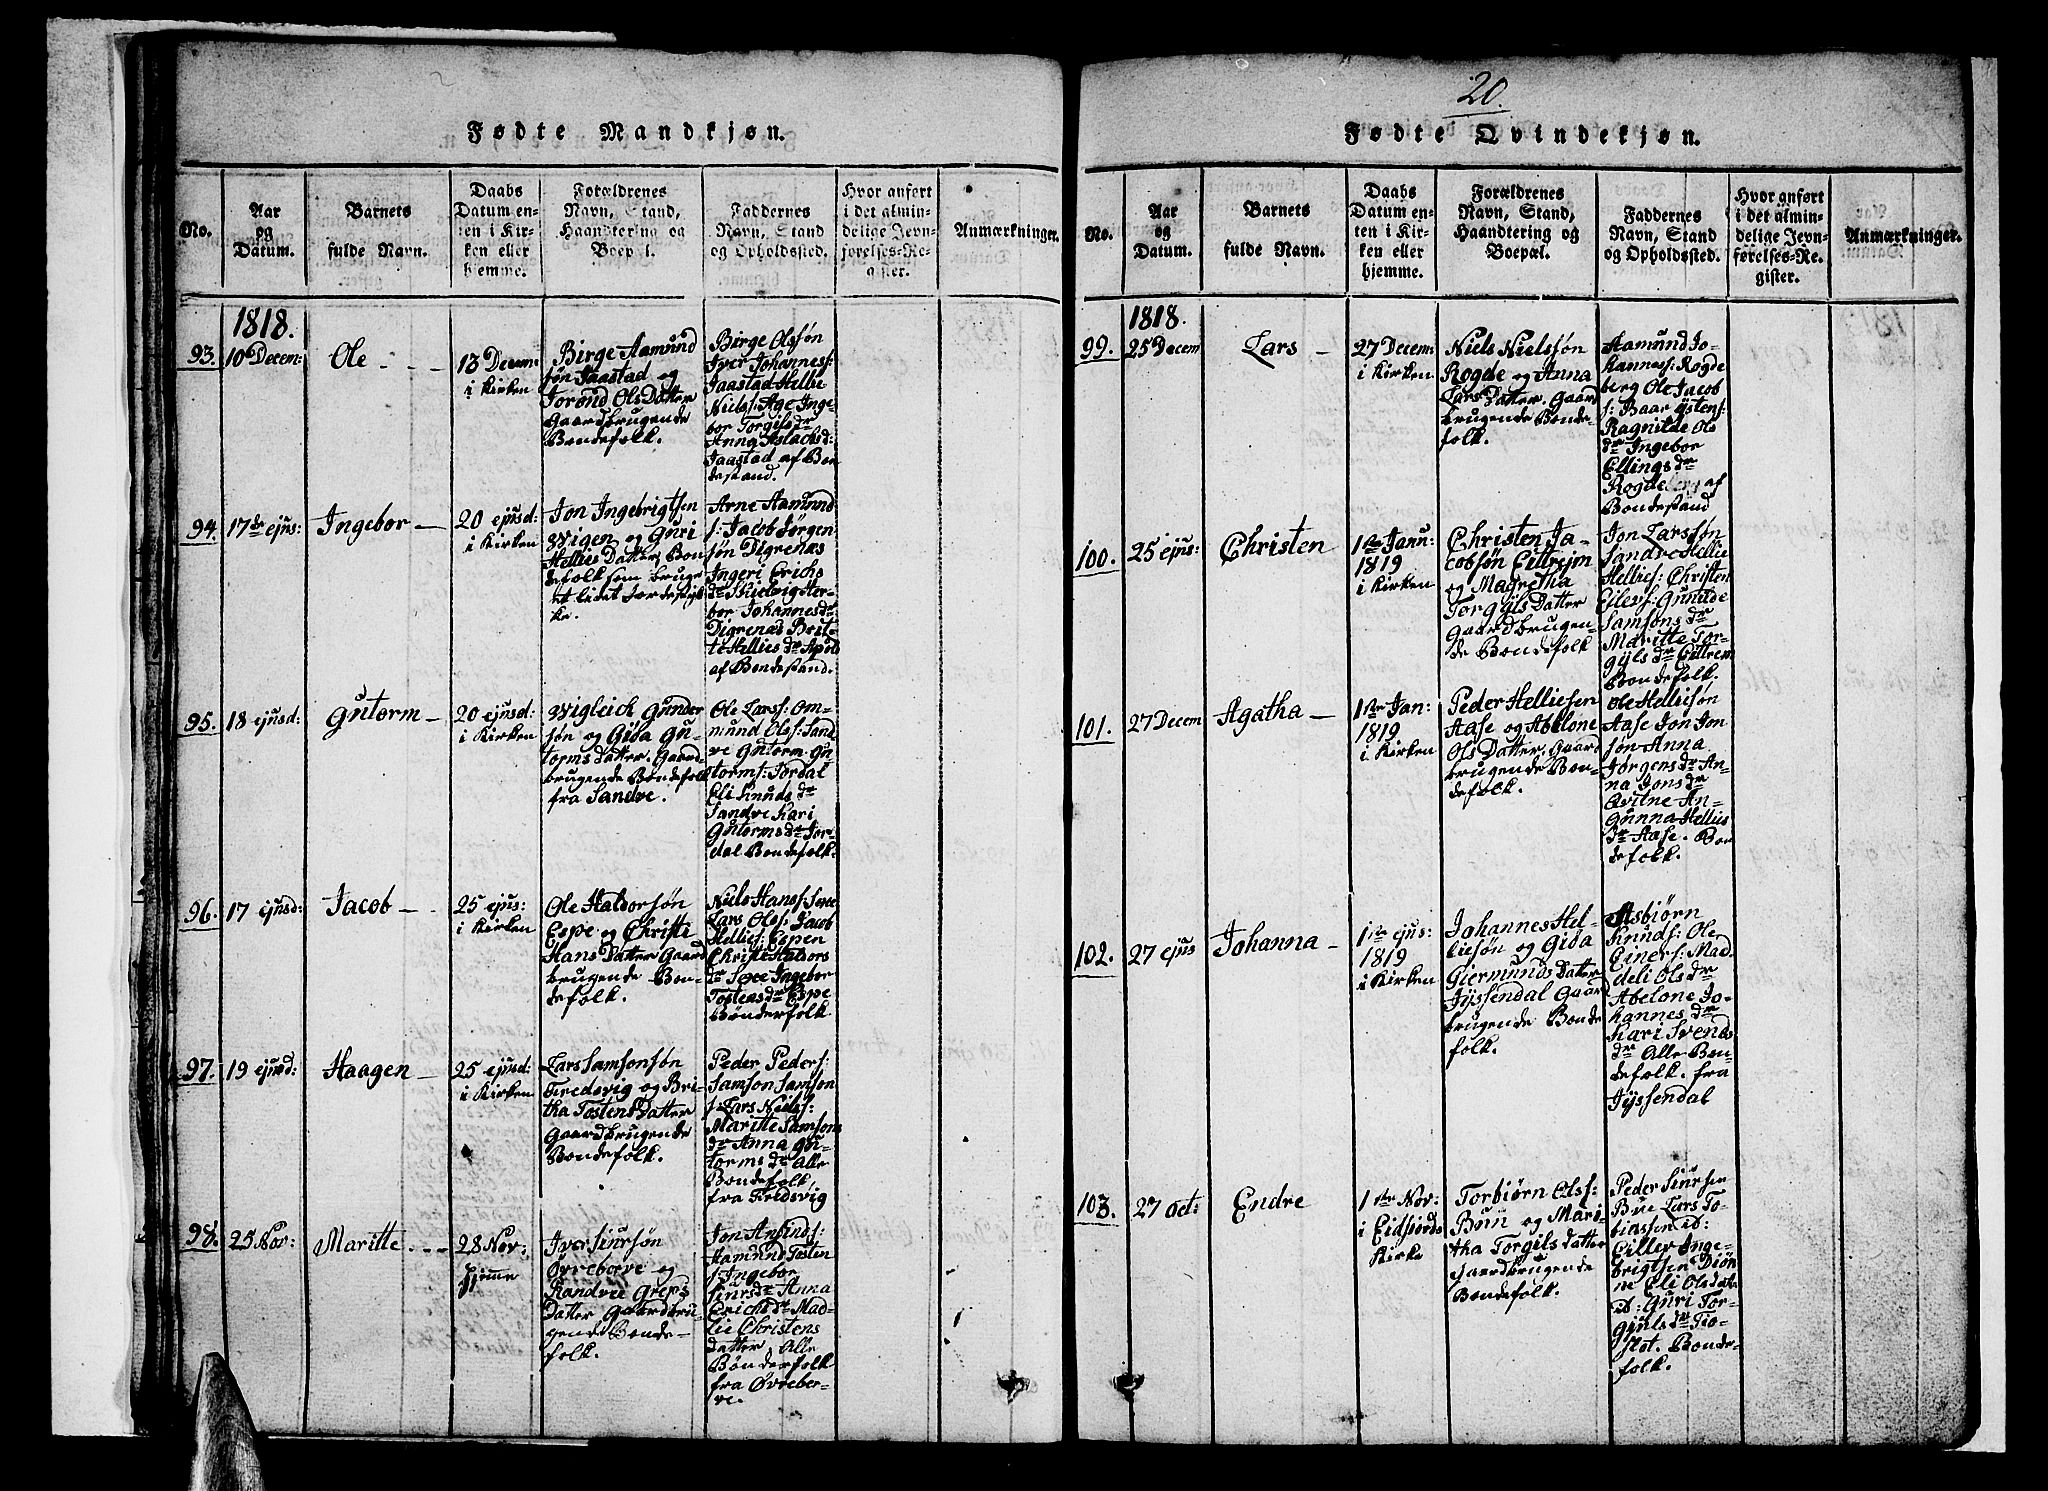 20.
Fødte Mandkjøn.
No.
Aar
og
Datum.
Barnets
fulde Navn.
Daabs
Datum en-
ten i Kir-
ken eller
hjemme.
Forældrenes
Navn, Stand,
Haandtering og
Boepæl.
Faddernes
Navn, Stand
og Opholdssted.
Hvor anført
i det almin-
delige Jevn-
førelses-Re-
gister.
Anmærkninger.
1818.
93.
10 Decem:
Ole
13 Decem:
i Kirken
Birge Aamund
søn Jaastad og
Torond OlsDatter
Gaardbrugende
Bondefolk.
Birge Olssøn
Iver Johanness:
Jaastad Hellie
Niels: Age Inge-
bor Torgils dr
Anna Aslachsd:
Jaastad af Bon
destand.
94.
17de ejus:
Ingebor
20 ejusd:
i Kirken
Jon Ingebrigtsen
Wigen og Guri
Hellies Datter, Bon
defolk som bruge
et lidet Jordestyk
ke.
Arne Aamund
s: Jacob Jørgen
søn Digrenæs
Ingeri Erichs
dr Hedvig Her-
bor Johannes dr
Digrenæs Brit-
te Hellies dr Apold
af Bondestand.
95.
18 ejusd:
Gutorm
20 ejusd:
i Kirken
Wigleich Gunder
søn og Gida Gu-
torms Datter. Gaard
brugende Bondefolk
fra Sandve.
Ole Larss: Om-
mund Olss: Sand
ve Gutorm Gu-
torms: Jordal
Eli Knuds dr
Sandve Kari
Gutorms dr Jor-
dal Bondefolk.
96.
17 ejusd:
Jacob
25 ejus:
i Kirken
Ole Haldorsøn
Espe og Christi
Hans Datter Gaard
brugende Bon-
defolk.
Niels Hanss: Sexe
Lars Olss: Jacob
Hellies: Espen
Christi Haldors
dr Sexe Ingebor
Tostens dr Espe
Bønderfolk
97.
19 ejusd:
Haagen
25 ejusd:
i Kirken
Lars Samsonsøn
Fredsvig og Bri-
tha Tostens Datter
Gaardbrugende
Bondefolk.
Peder Peders:
Samson Samson
s: Lars Niels:
Maritte Samsons
dr Anna Gu-
torms dr Alle
Bondefolk,
fra Fredsvig
98.
25 Nov:
Maritte
28 Nov:
hjemme
Iver Siursøn
Øvreberve og
Randvei Greps
Datter Gaardbru-
gende Bonde-
folk.
Jon Amunds:
Aamund Tosten
s: Ingebor
Siurs dr Anna
Erichs dr Mad-
lie Christens
datter, Alle
Bønderfolk
fra Øvreber-
ve.
Fødte Qvindekjøn.
No.
Aar
og
Datum.
Barnets
fulde Navn.
Daabs
Datum en-
ten i Kir-
ken eller
hjemme.
Forældrenes
Navn, Stand,
Haandtering og
Boepæl.
Faddernes
Navn, Stand
og Opholdssted.
Hvor anført
i det almin-
delige Jevn-
førelses-Re-
gister.
Anmærkninger.
1818.
99.
25 Decem
Lars
27 Decem:
i Kirken
Niels Nielssøn
Rogde og Anna
Lars Datter. Gaard
brugende Bonde-
folk.
Aamund Jo-
hanness: Rogde
berg Ole Jacob
s: Baar Ystens:
Ragnilde Ols
dr Ingebor
Ellings dr
Rogdeberg af
Bondestand
100.
25 ejus:
Christen
1ste Janu:
1819
i Kirken
Christen Ja-
cobsøn Eittrejm
og Magretha
Torgyls Datter
Gaardbrugen-
de Bondefolk
Jon Larssøn
Sandve Hellie
Hellies: Christen
Eilevs: Gunilde
Samsons dr
Maritte Tor-
gyls dr Eittrem
Bondefolk.
101.
27 Decem
Agatha
1ste Jan:
1819
i Kirken
Peder Helliesen
Aase og Abelone
Ols Datter. Gaard
brugende Bon-
defolk.
Ole Helliesøn
Aase Jon Jon
søn Anna
Jørgens dr An-
na Jons dr
Qvitne An-
Gunna Hellies
dr Aase. Bon
defolk.
102.
27 ejus
Johanna
1ste ejus:
1819
i Kirken
Johannes Hel-
liesøn og Gida
Giermunds Datter
Jyssendal Gaard
brugende Bonde
folk.
Asbjørn
Knuds: Ole
Einers: Mad
deli Ols dr
Abelone Jo-
hannes dr
Kari Svends
dr Alle Bon-
defolk. fra
Jyssendal
103.
27 oct:
Endre
1ste Nov:
i Eidfjords
Kirke
Torbiørn Olss:
Buu og Mari-
tha Torgils Datter
Gaardbrugende
Bondefolk.
Peder Siursen
Bue Lars To-
biassen ib:
Eiller Inge-
brigtsen Diøn
ne Eli Olsdatt
ib: Guri Tor-
giuls dr Tio-
flot. Bonde-
folk.